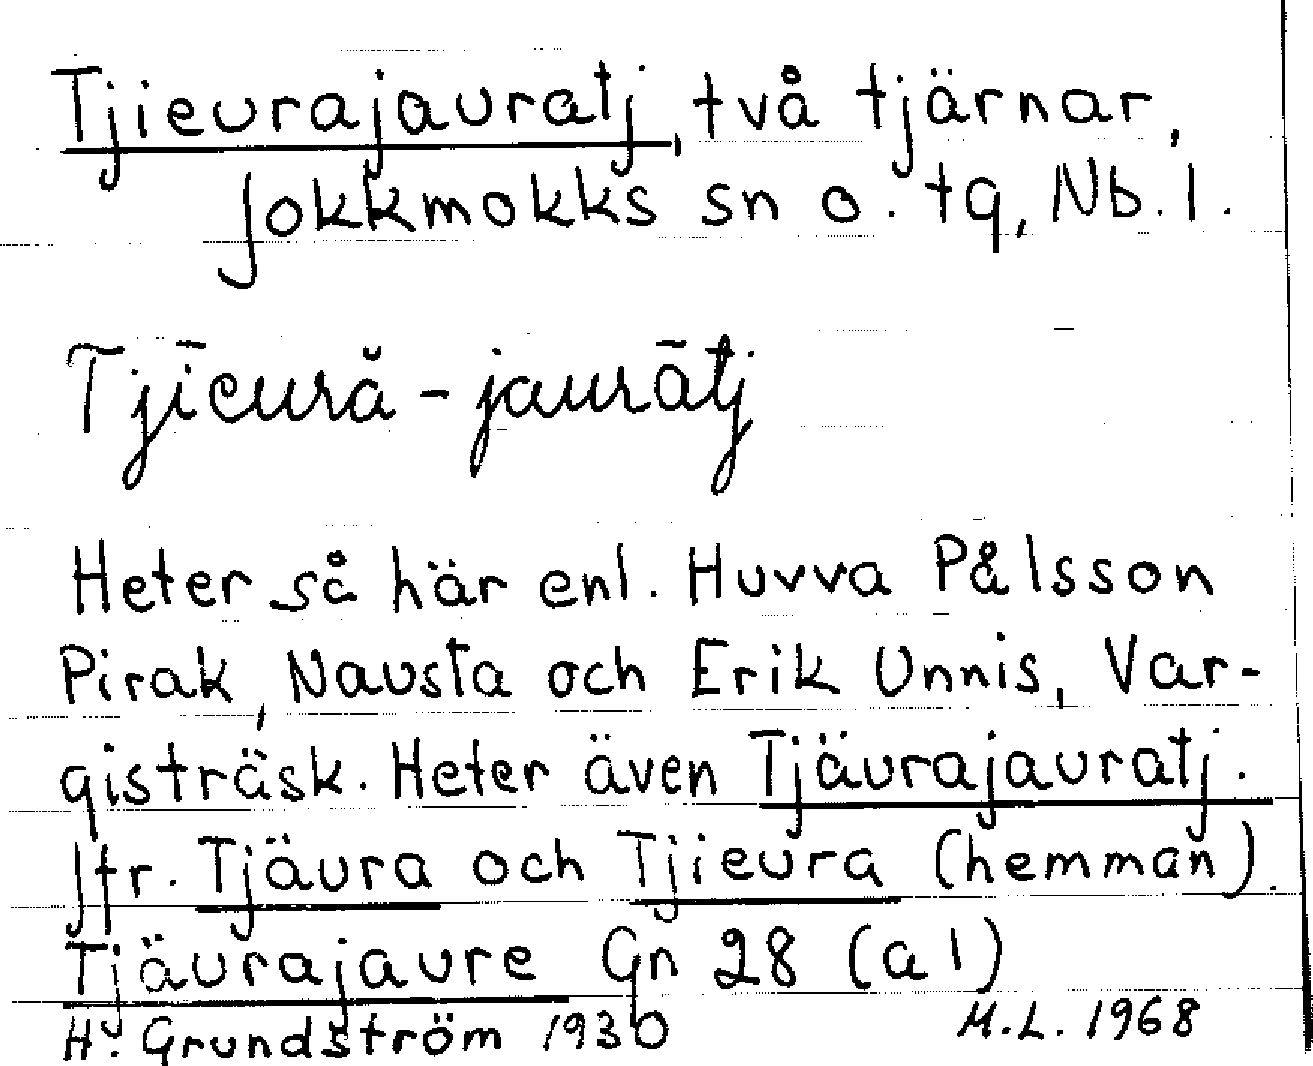 Tjieurajauratj, två tjärnar,
Jokkmokks sn o. tg, Nb. l.
Tjīeură - jaurātj
Heter så här enl. Huvva Pålsson
Pirak, Nausta och Erik Unnis, Var-
gisträsk. Heter även Tjäurajauratj.
Jfr. Tjäura och Tjieura (hemman).
Tjäurajaure Gn 28 (a l)
Hj. Grundström 1930 M.L. 1968